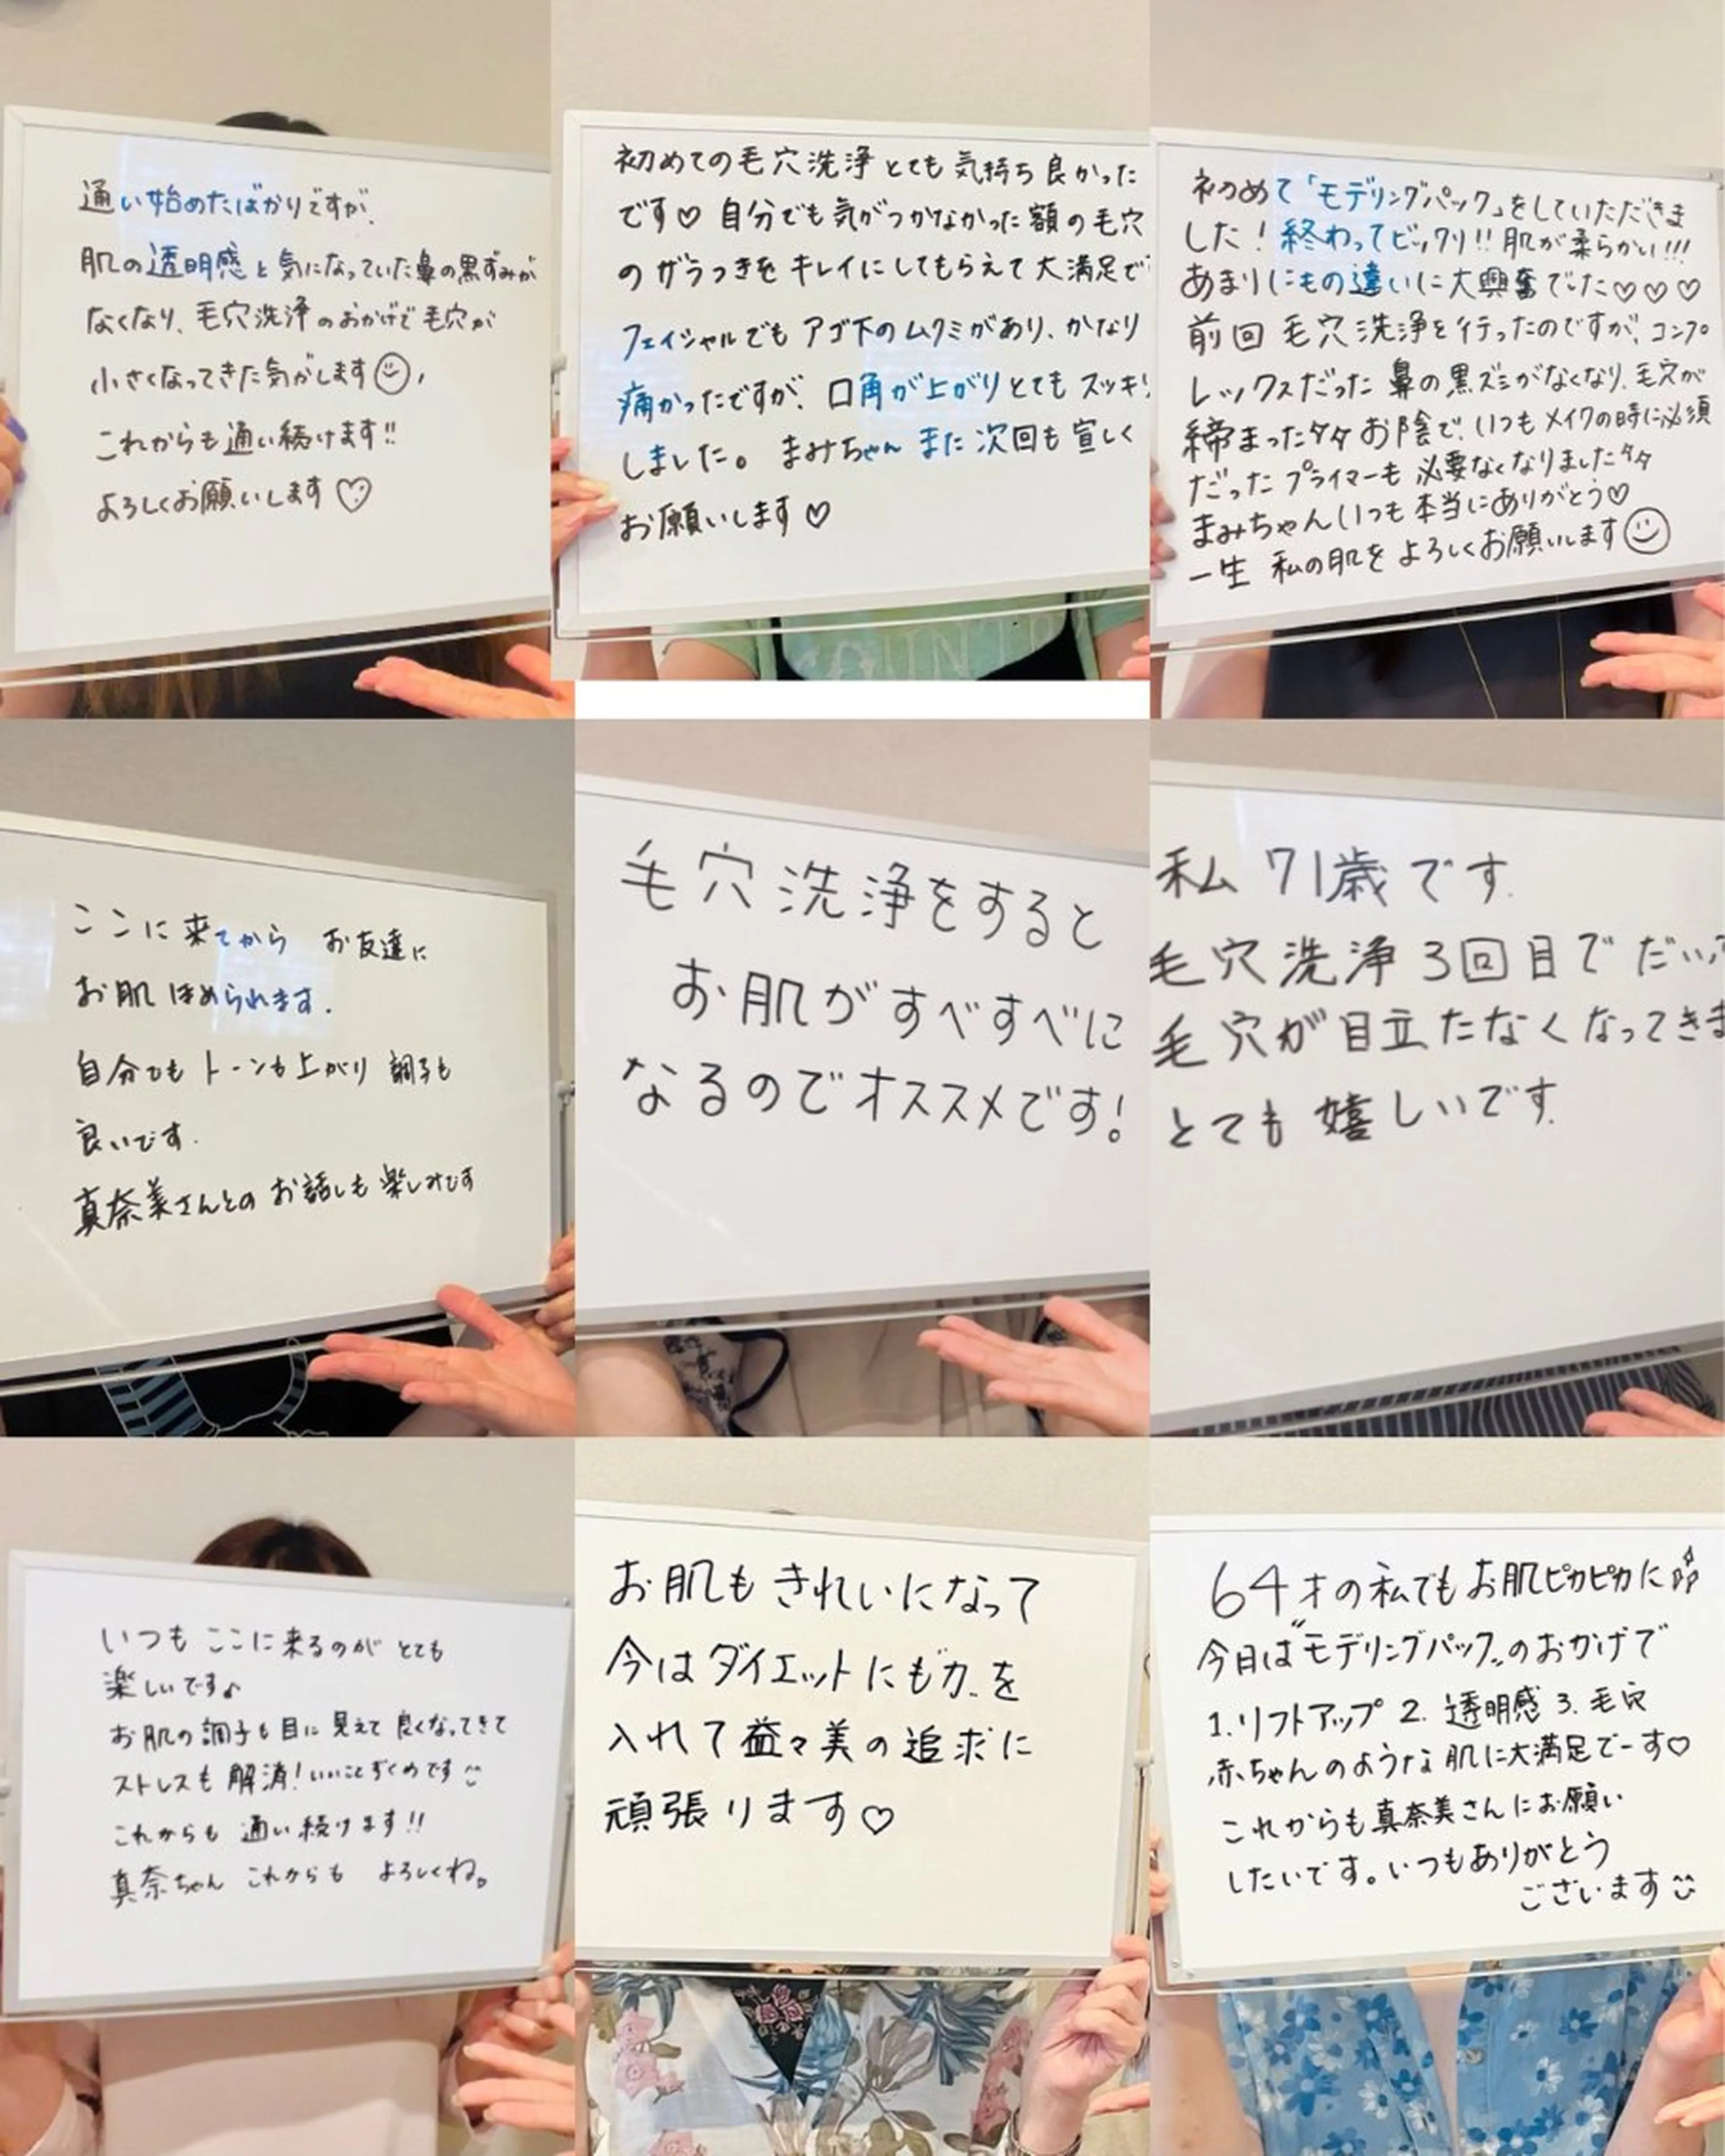 通い始めたばかりですが、
肌の透明感と気になっていた鼻の黒ずみが
なくなり、毛穴洗浄のおかげで毛穴が
小さくなってきた気がします
これからも通い続けます!!
よろしくお願いします♡
初めての毛穴洗浄とても気持ち良かった
です♡自分でも気がつかなかった額の毛穴
のザラつきをキレイにしてもらえて大満足で
フェイシャルでもアゴ下のムクミがあり、かなり
痛かったですが、口角が上がりとてもスッキリ
しました。まみちゃんまた次回も宜しく
お願いします♡
初めて「モデリングパック」をしていただきま
した!終わってビックリ!!肌が柔らかい!!!
あまりにもの違いに大興奮でした♡♡♡
前回毛穴洗浄を行ったのですが、コンプ
レックスだった鼻の黒ズミがなくなり、毛穴が
締まったタタお陰で、いつもメイクの時に必須
だったプライマーも必要なくなりましたタタ
まみちゃんいつも本当にありがとう♡
一生私の肌をよろしくお願いします
ここに来てから お友達に
お肌ほめられます.
自分でもトーンも上がり調子も
良いです.
真奈美さんとのお話しも楽しみです
毛穴洗浄をすると
お肌がすべすべに
なるのでオススメです!
私 71歳です.
毛穴洗浄3回目でだいぶ
毛穴が目立たなくなってきま
とても嬉しいです.
いつもここに来るのがとても
楽しいです♪
お肌の調子も目に見えて良くなってきて
ストレスも解消!いいことずくめです
これからも通い続けます!!
真奈ちゃんこれからも よろしくね。
お肌もきれいになって
今はダイエットにも力を
入れて益々美の追求に
頑張ります♡
64才の私でもお肌ピカピカに
今日は"モデリングパック"のおかげで
1.リフトアップ 2.透明感 3.毛穴
赤ちゃんのような肌に大満足でーす♡
これからも真奈美さんにお願い
したいです。いつもありがとう
ございます